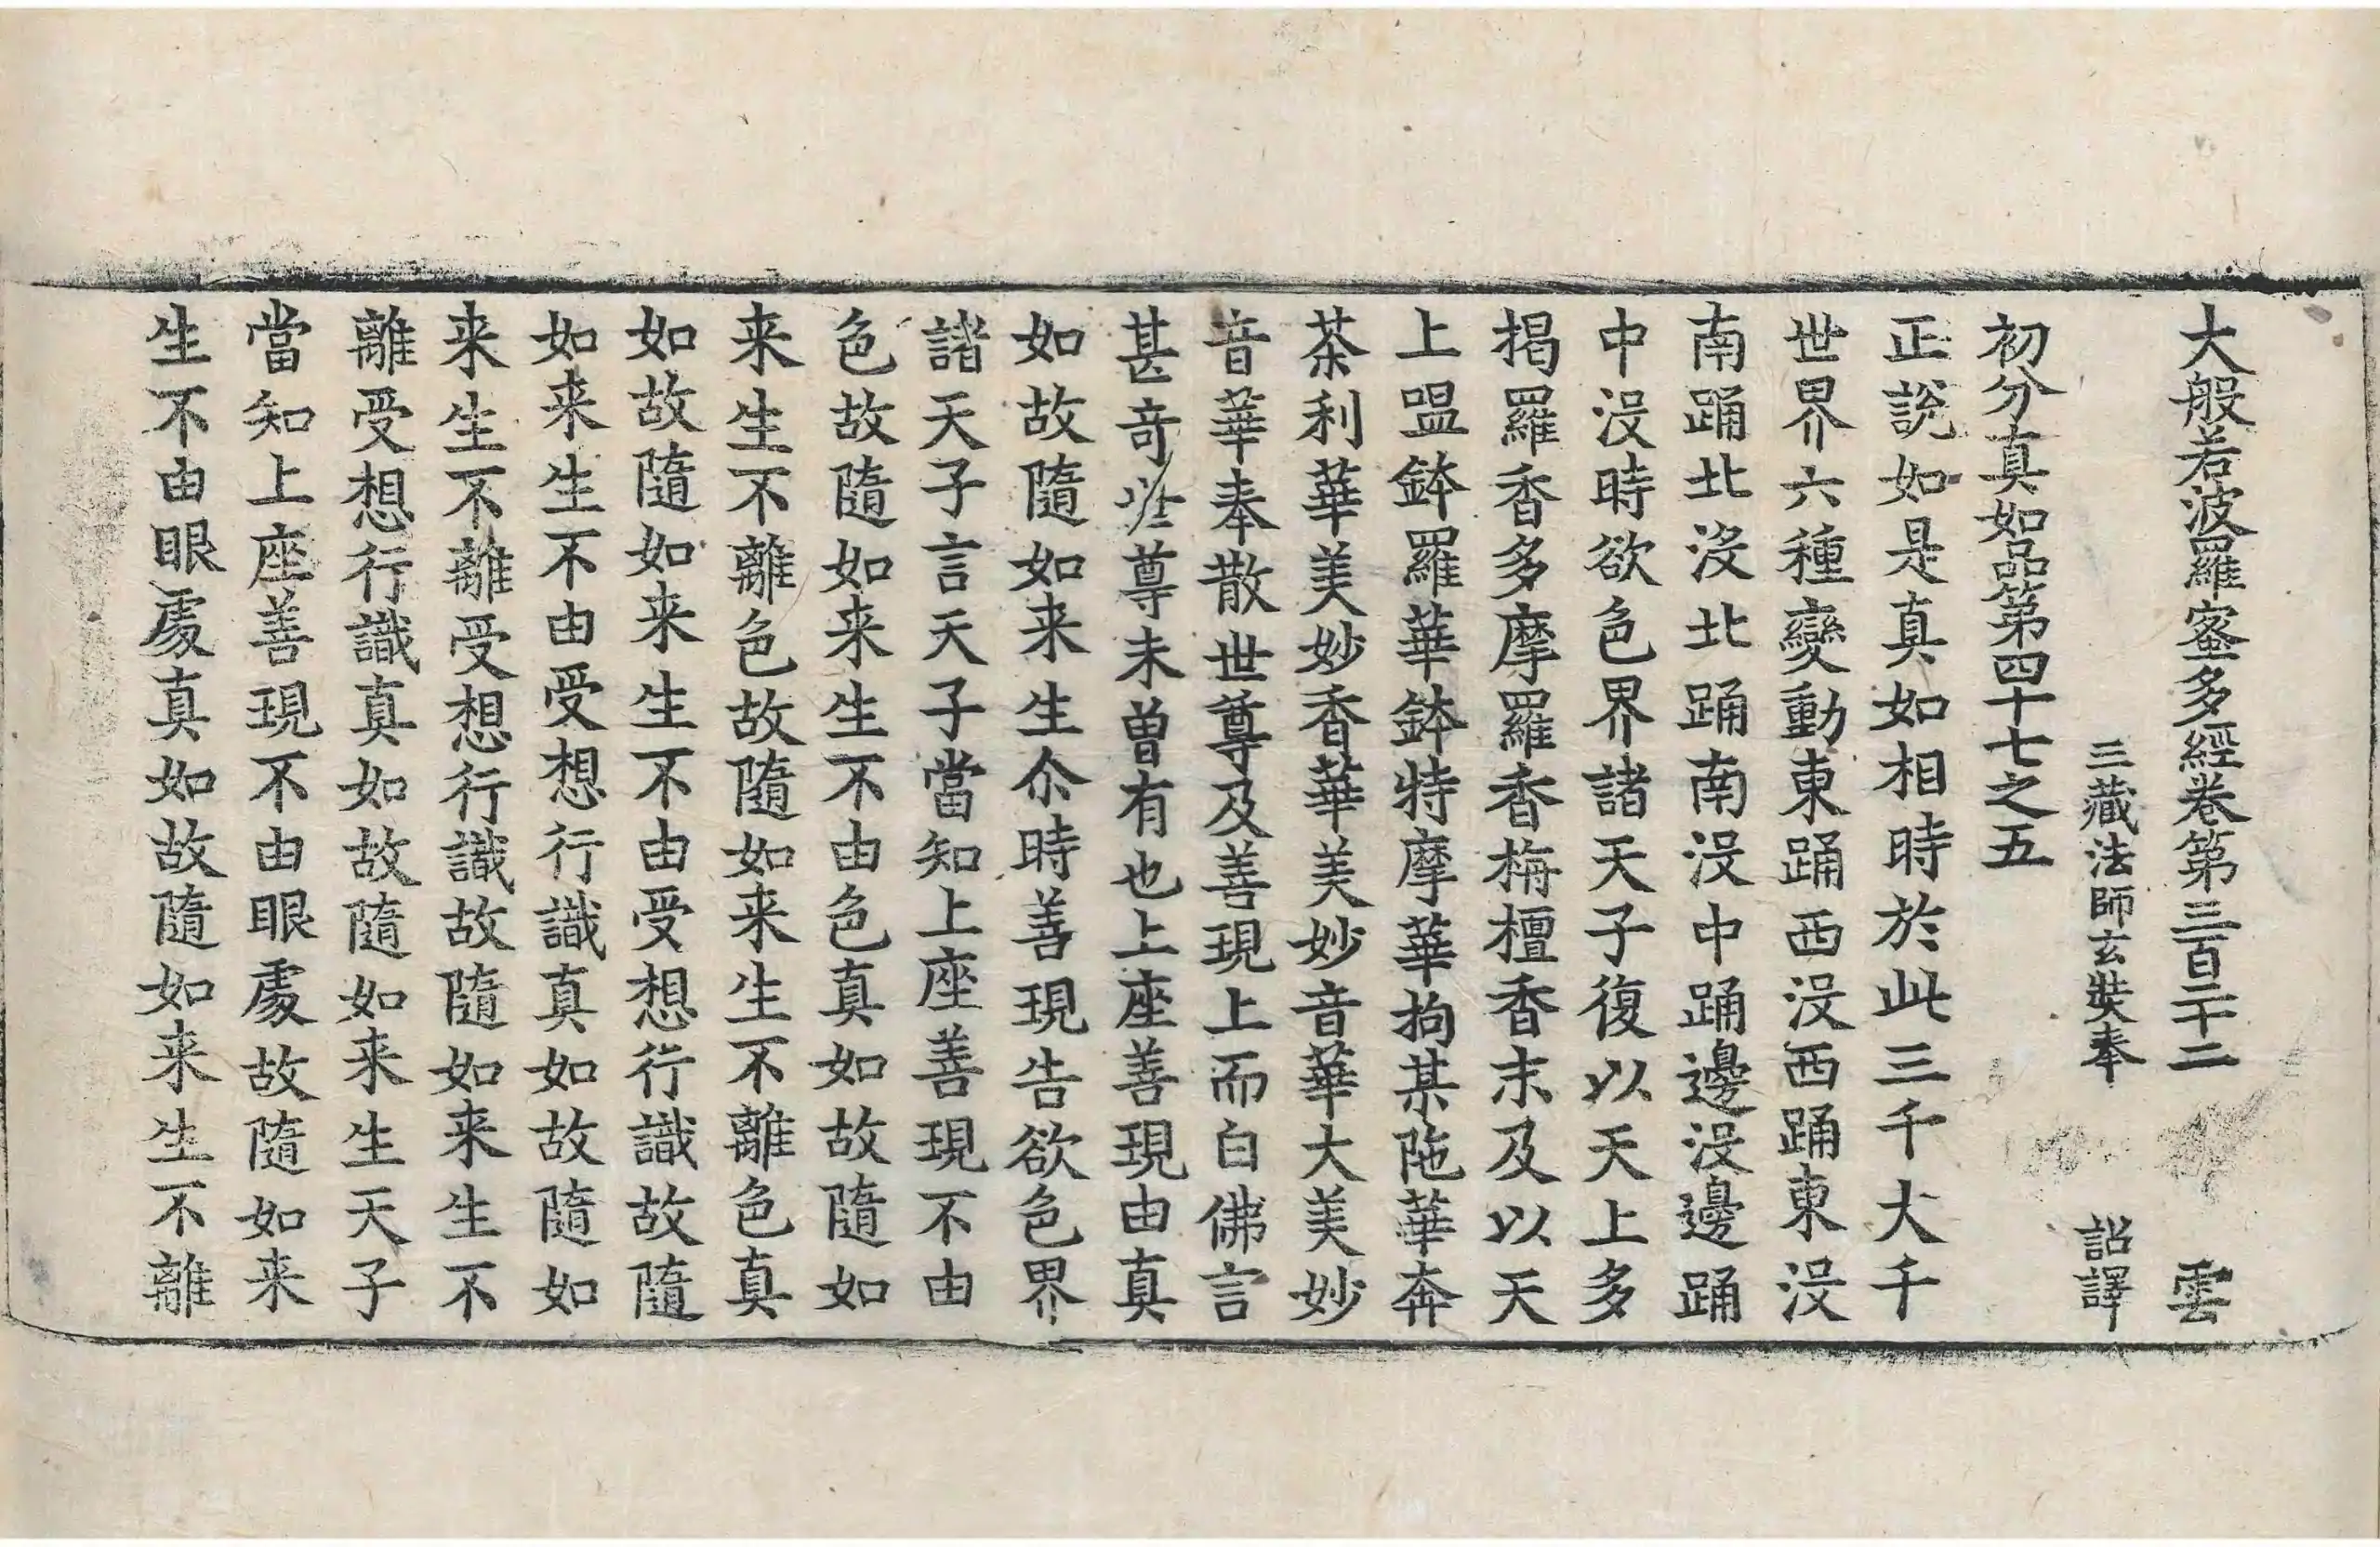 大般若波羅蜜多經卷第三百二十二 雲
三藏法師玄奘奉 詔譯
初分真如品第四十七之五
正說如是真如相時於此三千大千
世界六種變動東踊西沒西踊東沒
南踊北沒北踊南沒中踊邊沒邊踊
中沒時欲色界諸天子復以天上多
揭羅香多摩羅香栴檀香末及以天
上嗢鉢羅華鉢特摩華拘某陁華奔
茶利華美妙香華美妙音華大美妙
音華奉散世尊及善現上而白佛言
甚奇世尊未曾有也上座善現由真
如故隨如来生尒時善現告欲色界
諸天子言天子當知上座善現不由
色故隨如来生不由色真如故隨如
来生不離色故隨如来生不離色真
如故隨如来生不由受想行識故隨
如来生不由受想行識真如故隨如
来生不離受想行識故隨如来生不
離受想行識真如故隨如来生天子
當知上座善現不由眼處故隨如来
生不由眼處真如故隨如来生不離